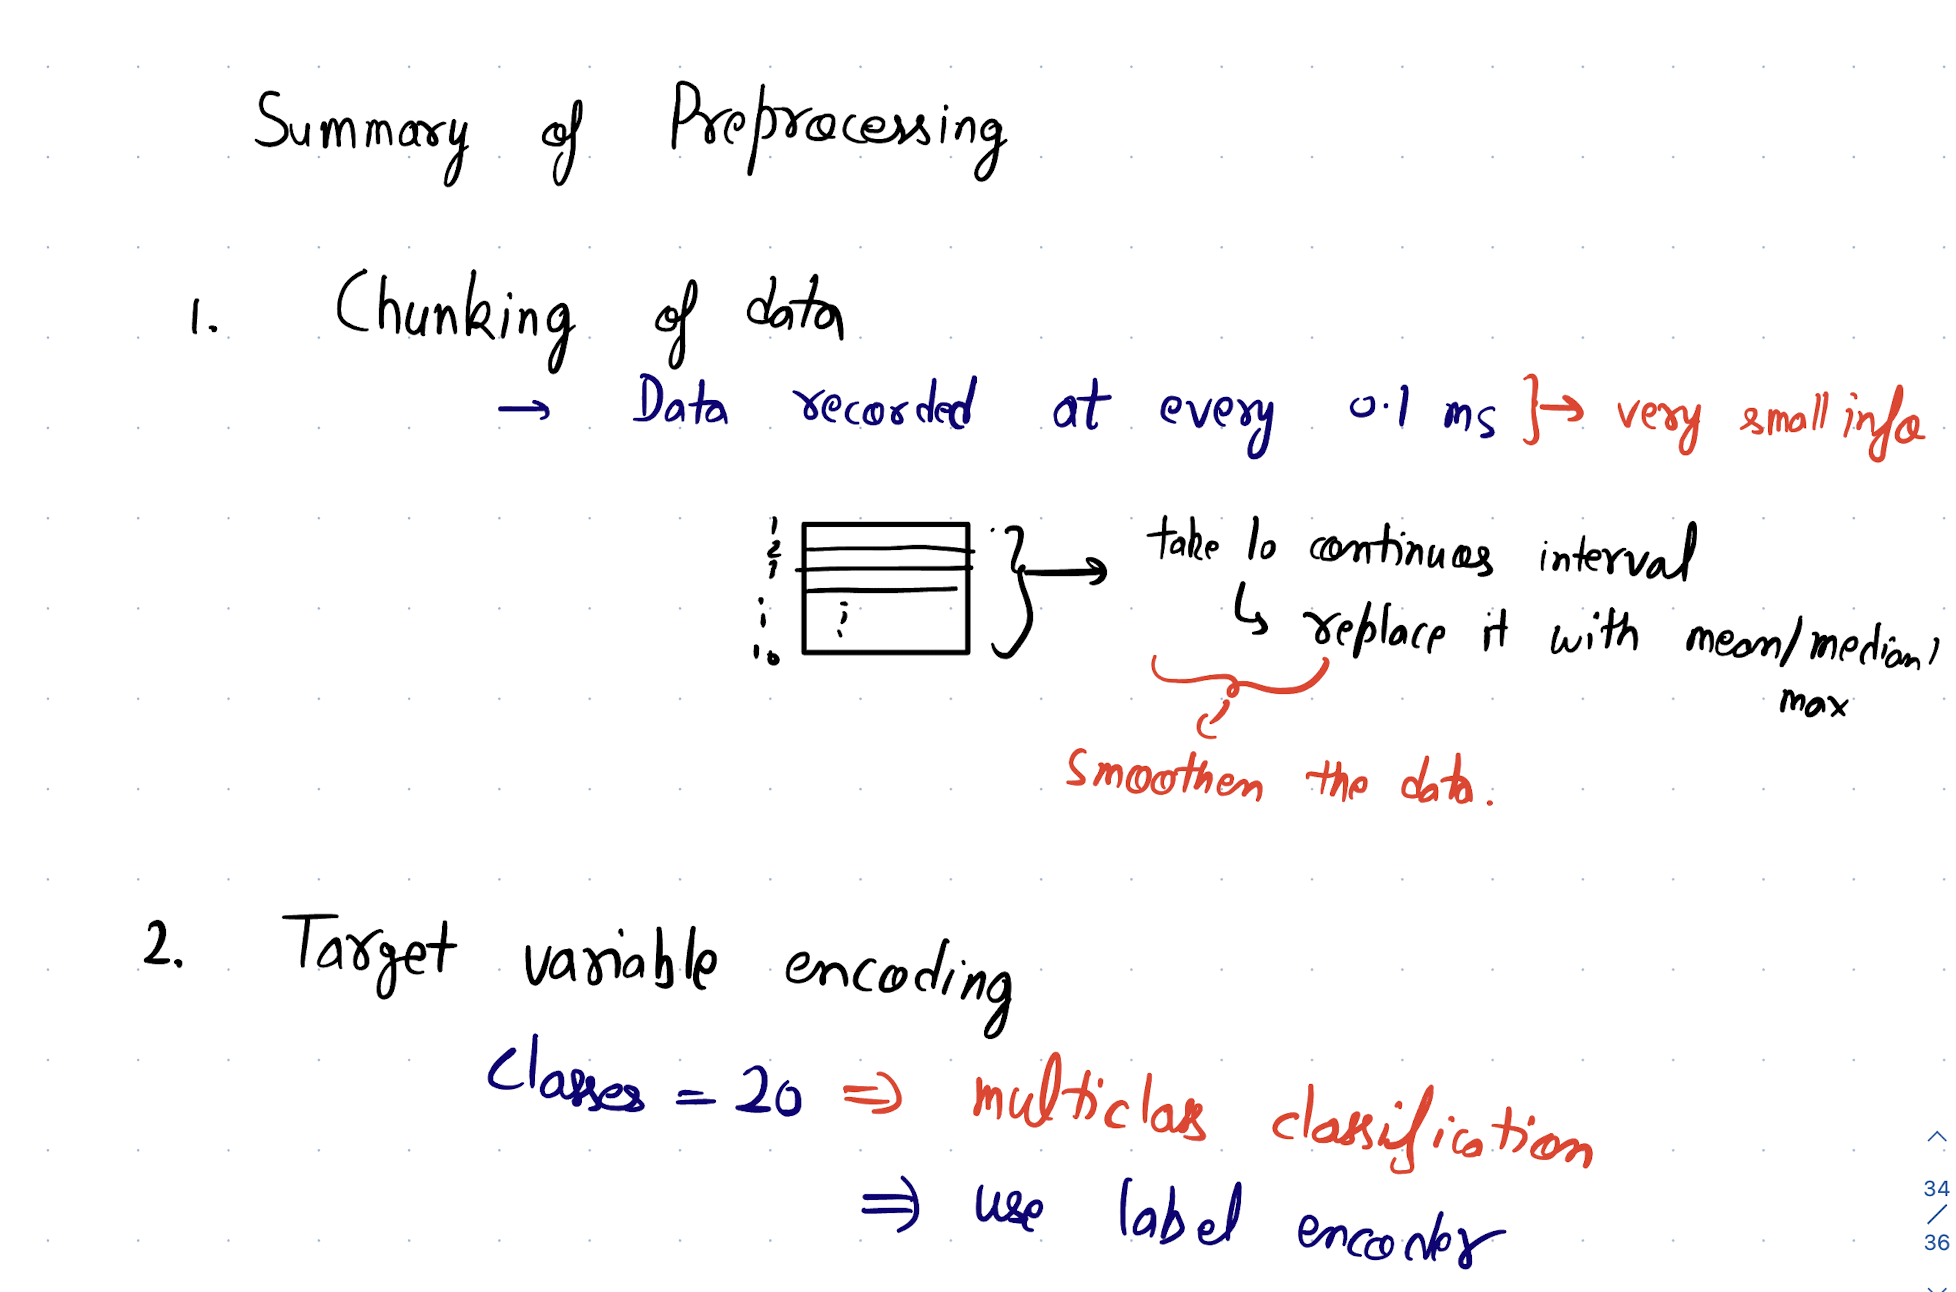 Summary of Preprocessing
1. Chunking of data
→ Data recorded at every 0.1 ms }→ very small info
1
2
10
take 10 continuos interval
↳ replace it with mean/median/
max
Smoothen the data.
2. Target variable encoding
Classes = 20 ⇒ multiclass classification
⇒ use label encoder
34
/
36